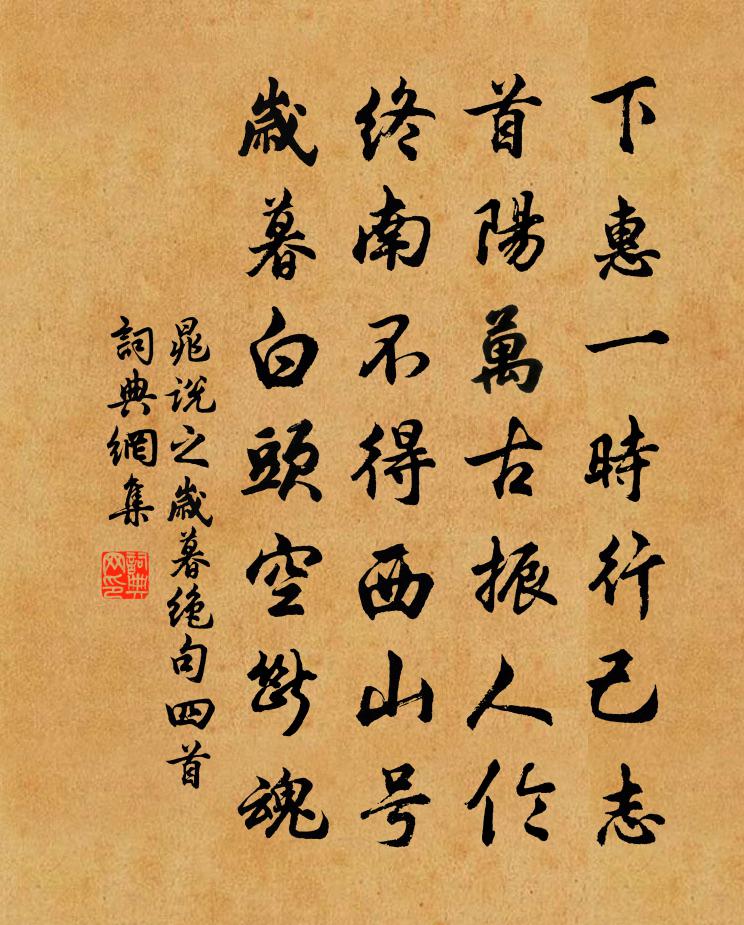 下惠一時行己志
首陽萬古振人伦
終南不得西山号
歲暮白頭空斷魂
晁說之歲暮絶句四首
詞典網集
詞典網印